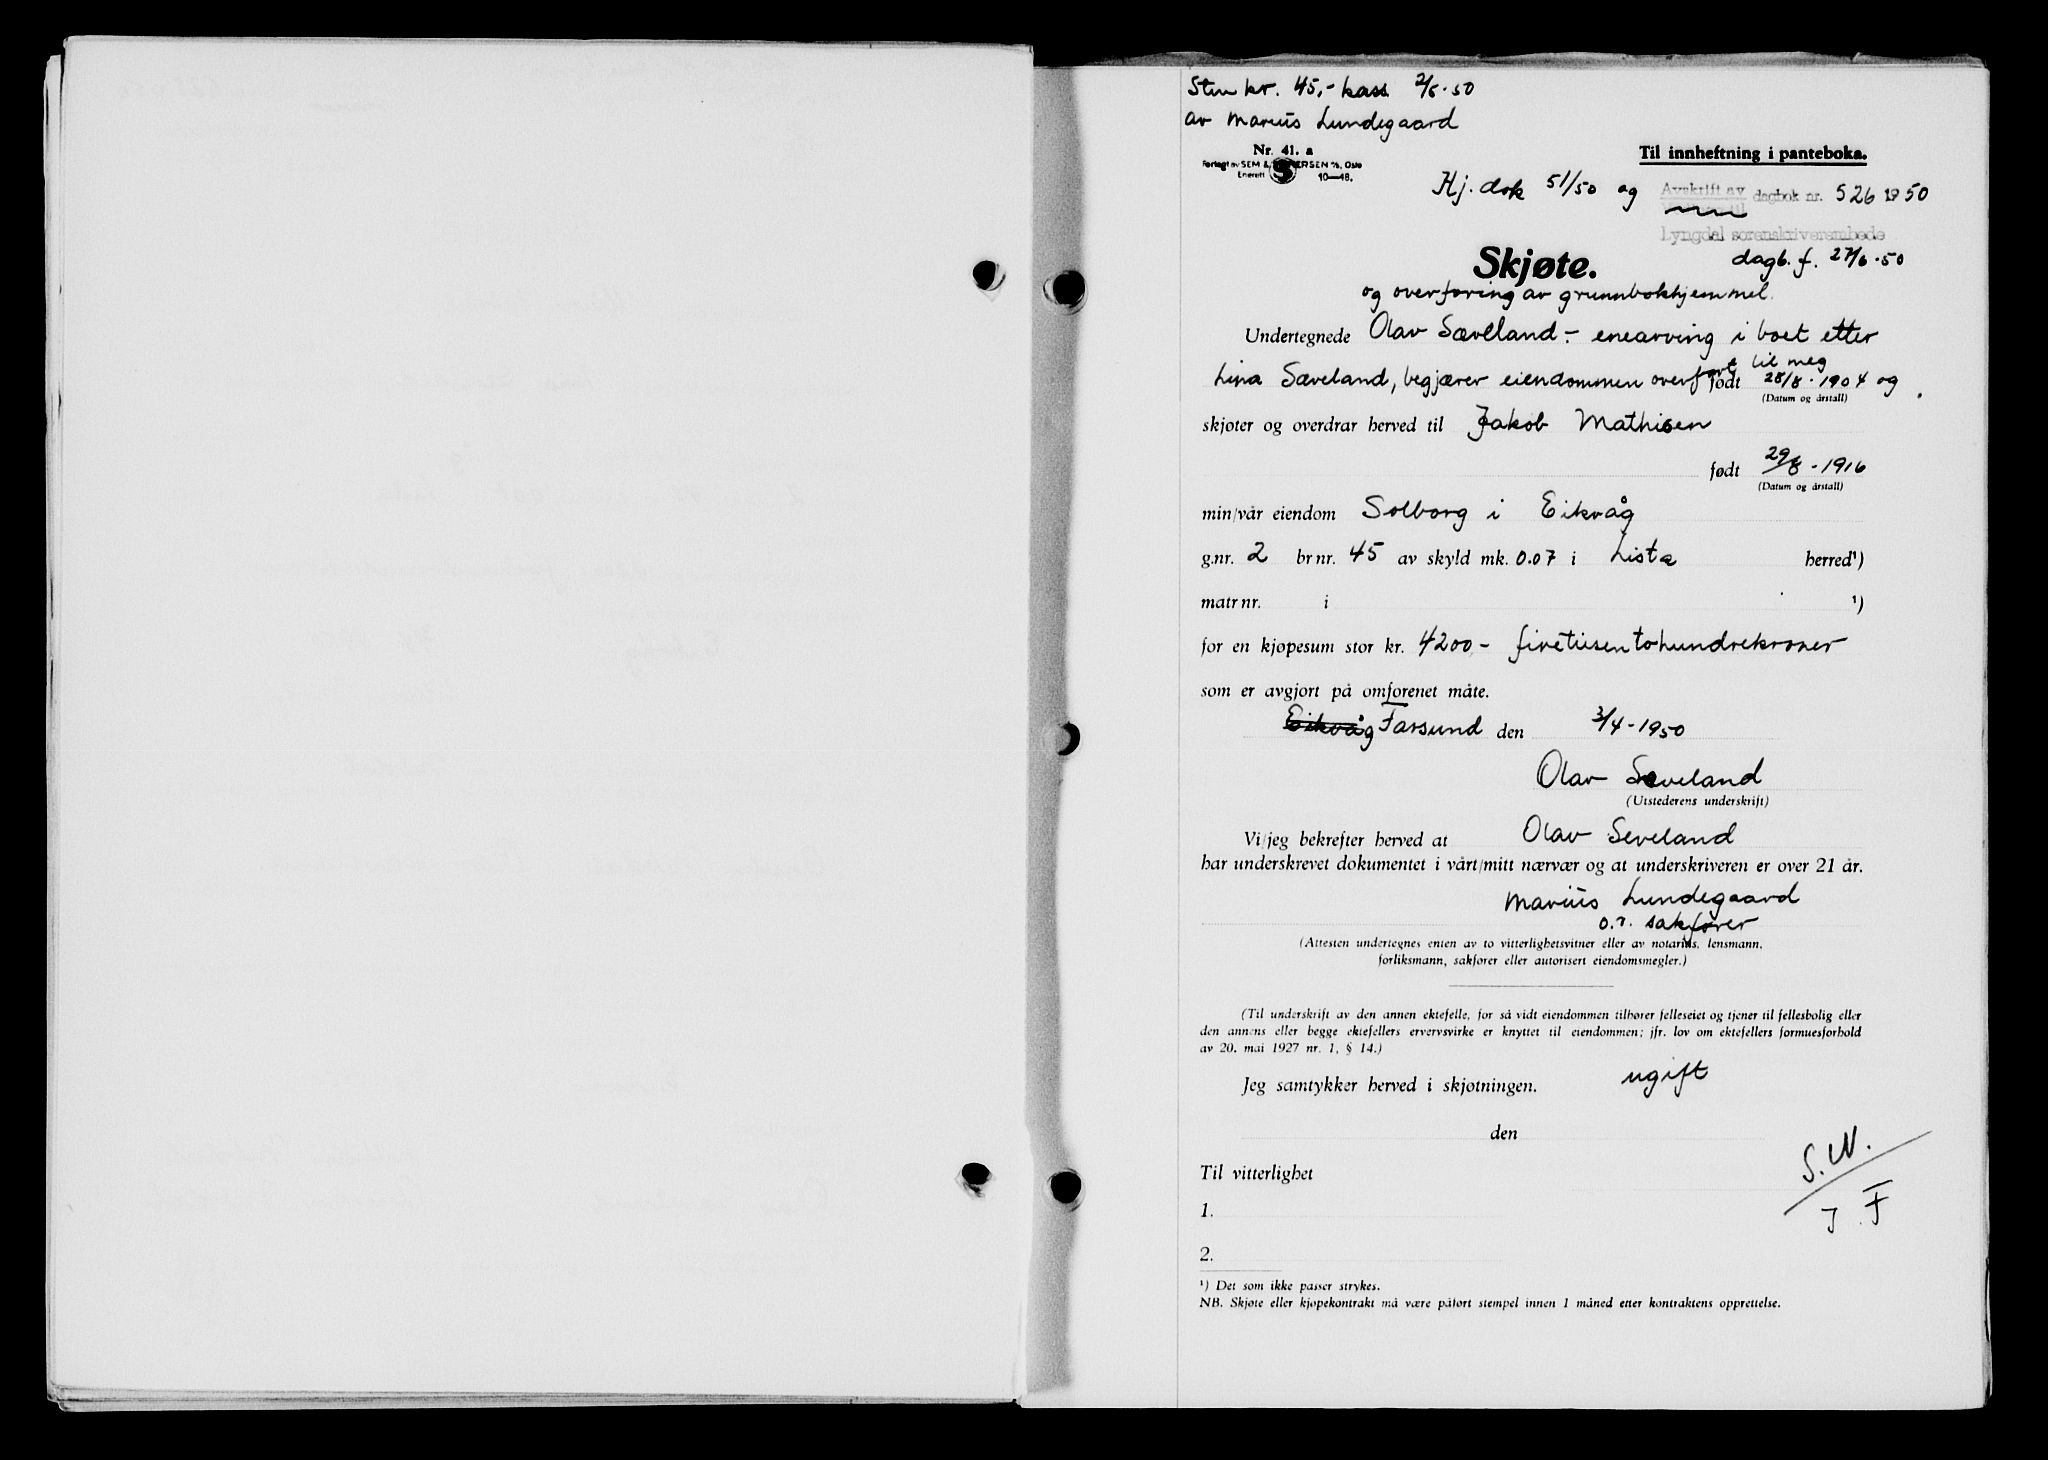 Stem kr. 45,- kass. 2/6-50
av Marius Lundegaard
Nr. 41. a
Forlagt av SEM & STENERSEN A/S, Oslo
Enerett 10—48.
Til innheftning i panteboka.
Hj. dok 51/50 og Avskrift av dagbok nr. 526 1950
Lyngdal sorenskriverembede
dagb. f. 27/6-50
Skjøte.
og overføring av grunnbokhjemmel.
Undertegnede Olav Sæveland - enearving i boet etter
Lina Sæveland, begjærer eiendommen overført til meg født 28/8-1904 og
(Datum og årstall)
skjøter og overdrar herved til Jakob Mathisen
født 29/8-1916
(Datum og årstall)
min/vår eiendom Solborg i Eikvåg
g.nr. 2 br nr. 45 av skyld mk. 0.07 i Lista herred¹)
matr nr. i ¹)
for en kjøpesum stor kr. 4200,- firetusentohundrekroner
som er avgjort på omforenet måte.
Eikvåg Farsund den 3/4-1950
Olav Seveland
(Utstederens underskrift)
Vi/jeg bekrefter herved at Olav Seveland
har underskrevet dokumentet i vårt/mitt nærvær og at underskriveren er over 21 år.
Marius Lundegaard
o.r. sakfører
(Attesten undertegnes enten av to vitterlighetsvitner eller av notarius, lensmann,
forliksmann, sakfører eller autorisert eiendomsmegler.)
(Til underskrift av den annen ektefelle, for så vidt eiendommen tilhører felleseiet og tjener til fellesbolig eller
den annens eller begge ektefellers ervervsvirke er knyttet til eiendommen; jfr. lov om ektefellers formuesforhold
av 20. mai 1927 nr. 1, § 14.)
Jeg samtykker herved i skjøtningen. ugift
den
Til vitterlighet
1.
2.
¹) Det som ikke passer strykes.
NB. Skjøte eller kjøpekontrakt må være påført stempel innen 1 måned etter kontraktens opprettelse.